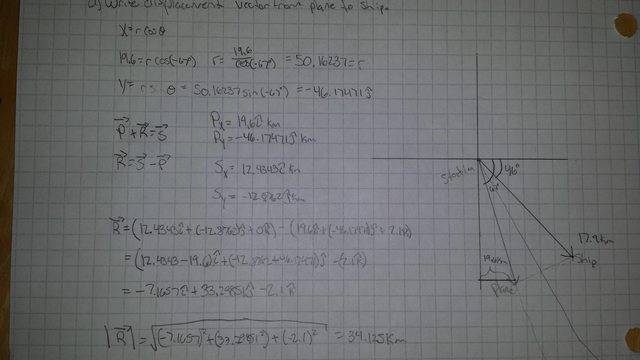 a) Write displacement vector from plane to ship.
x = r cosθ
19.6 = r cos(-67°) r = 19.6/cos(-67°) = 50.16237 = r
y = r s θ = 50.16237 sin(-67°) = -46.17471ĵ
P⃗ + R⃗ = S⃗
Px = 19.6î km
Py = -46.17471ĵ km
R⃗ = S⃗ - P⃗
Sx = 12.4343î km
Sy = -12.8762ĵ km
R⃗ = (12.4343î + (-12.8762)ĵ + 0k̂) - (19.6î + (-46.1747)ĵ + 2.1k̂)
= (12.4343 - 19.6)î + (-12.8762 + 46.17471)ĵ - (2.1k̂)
= -7.1657î + 33.29851ĵ - 2.1k̂
|R⃗| = √((-7.1657)² + (33.29851²) + (-2.1)²) = 34.125 km
station
46°
67°
17.9km
Ship
19.6km
Plane